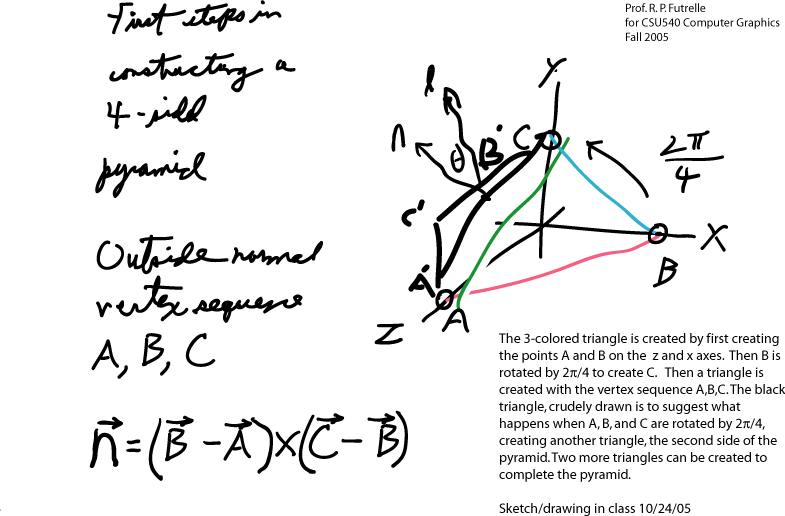 First steps in
constructing a
4-sided
pyramid
Outside normal
vertex sequence
A, B, C
n⃗ = (B⃗ - A⃗) x (C⃗ - B⃗)
Prof. R. P. Futrelle
for CSU540 Computer Graphics
Fall 2005
Y
l
n
θ
B'
C
2π/4
C'
X
A'
B
Z
A
The 3-colored triangle is created by first creating
the points A and B on the z and x axes. Then B is
rotated by 2π/4 to create C. Then a triangle is
created with the vertex sequence A,B,C. The black
triangle, crudely drawn is to suggest what
happens when A, B, and C are rotated by 2π/4,
creating another triangle, the second side of the
pyramid. Two more triangles can be created to
complete the pyramid.
Sketch/drawing in class 10/24/05